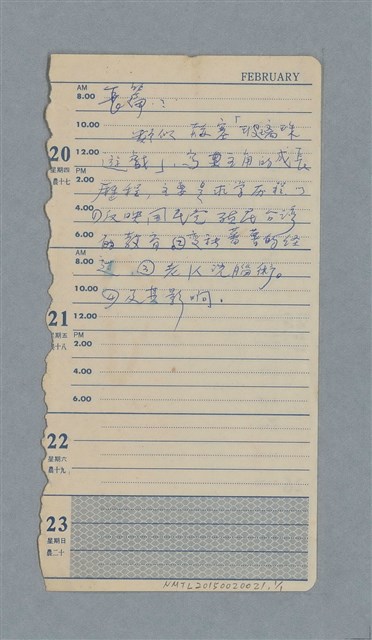 FEBRUARY
AM
8.00
長篇：
10.00
類似 赫塞「玻璃珠
20
12.00
遊戲」，寫男主角的成長
星期四
PM
農十七
2.00
歷程，主要是求學歷程
4.00
反映國民党 殖民台湾
6.00
的教育
AM
8.00
過 ③ 老K洗腦術。
10.00
④及其影响.
21
12.00
星期五
PM
農十八
2.00
4.00
6.00
22
星期六
農十九
23
星期日
農二十
NMTL20150020021.1/1